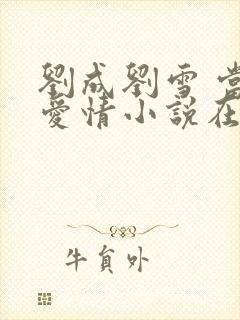 劉成劉雪 當
愛情小說在
牛貟外